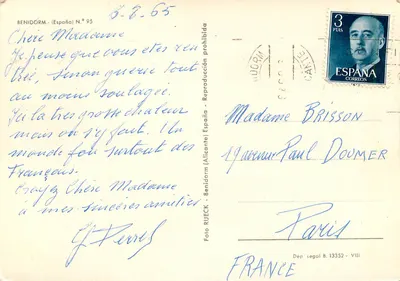 BENIDORM - (España) N.º 95
6-8-65
Chère Madame
Je pense que vous êtes ren
trée, sinon guérie tout
au moins soulagée.
Ici la très grosse chaleur
mais on s'y fait. Un
monde fou surtout des
Français.
Croyez Chère Madame
à mes sincères amitiés
Foto RUECK - Benidorm (Alicante) España - Reproducción prohibida
3
PTAS
ESPAÑA
CORREOS
Madame BRISSON
19 avenue Paul DOUMER
Paris
Dep. legal B. 13332 - VIII
FRANCE